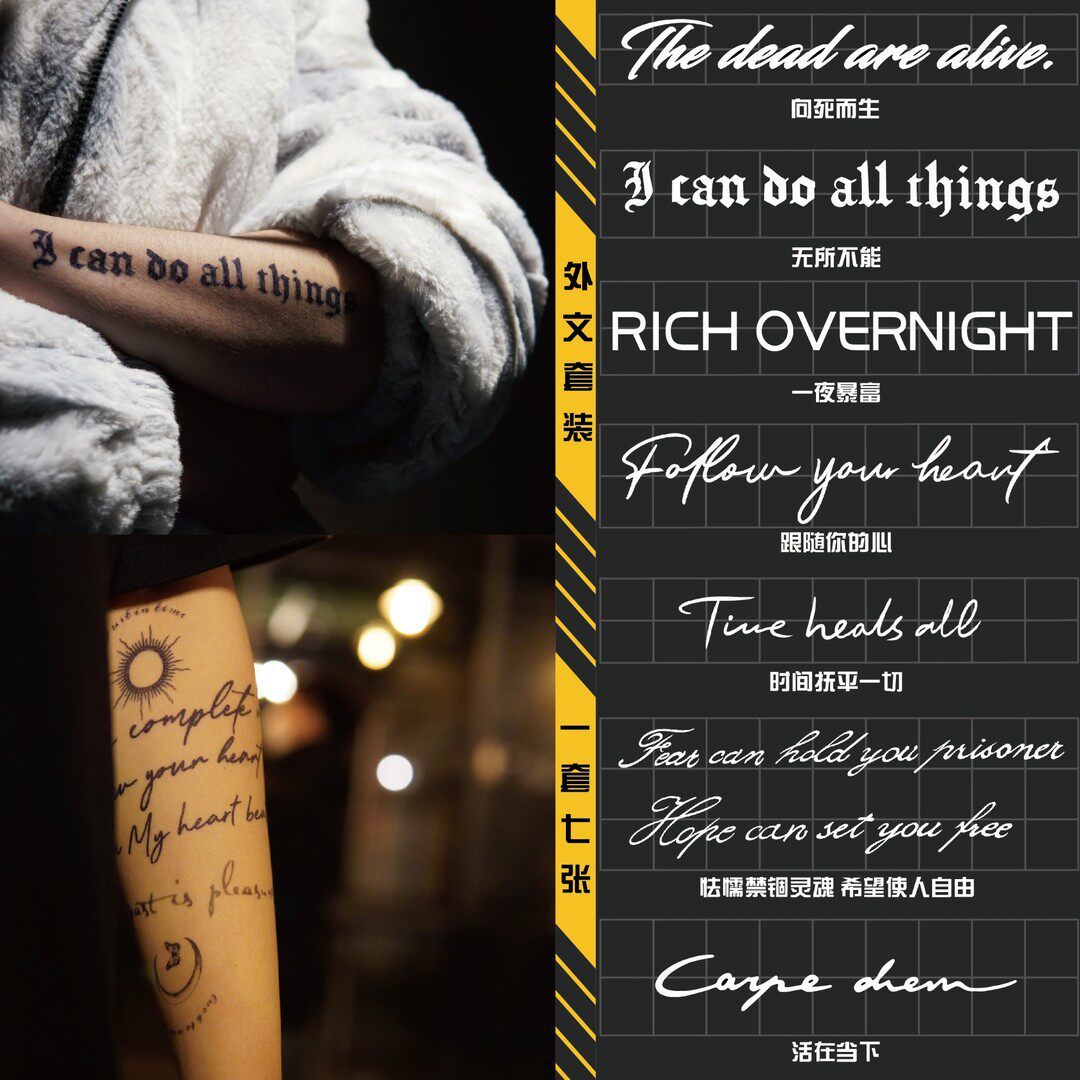 I can do all things
complete
your heart
My heart
is
外文套装
一套七张
The dead are alive.
向死而生
I can do all things
无所不能
RICH OVERNIGHT
一夜暴富
Follow your heart
跟随你的心
Time heals all
时间抚平一切
Fear can hold you prisoner
Hope can set you free
怯懦禁锢灵魂 希望使人自由
Carpe diem
活在当下